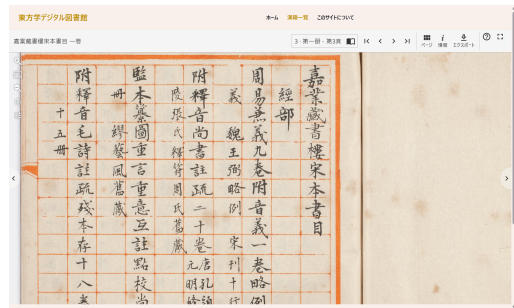 東方学デジタル図書館
ホーム 漢籍一覧 このサイトについて
嘉業藏書樓宋本書目 一卷
3 - 第一册 - 第3頁
ページ 情報 エクスポート
嘉業藏書樓宋本書目
經部
周易兼義九卷附音義一卷略例
義 魏王弼略例 宋刊十行
附釋音尚書註疏二十卷 唐孔
陵張氏 周氏舊藏 元 明
監本纂圖重言重意互註點校尚
冊 繆藝風舊藏
附釋音毛詩註疏殘本存十八
十五冊